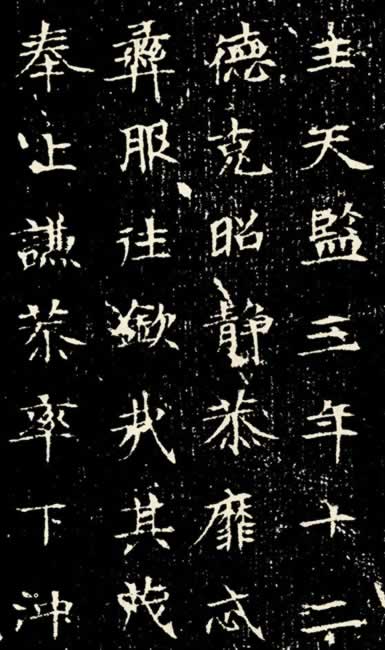 主天監三年十二
德克昭靜恭靡忒
彝服往欽哉其茂
奉上謙恭率下沖